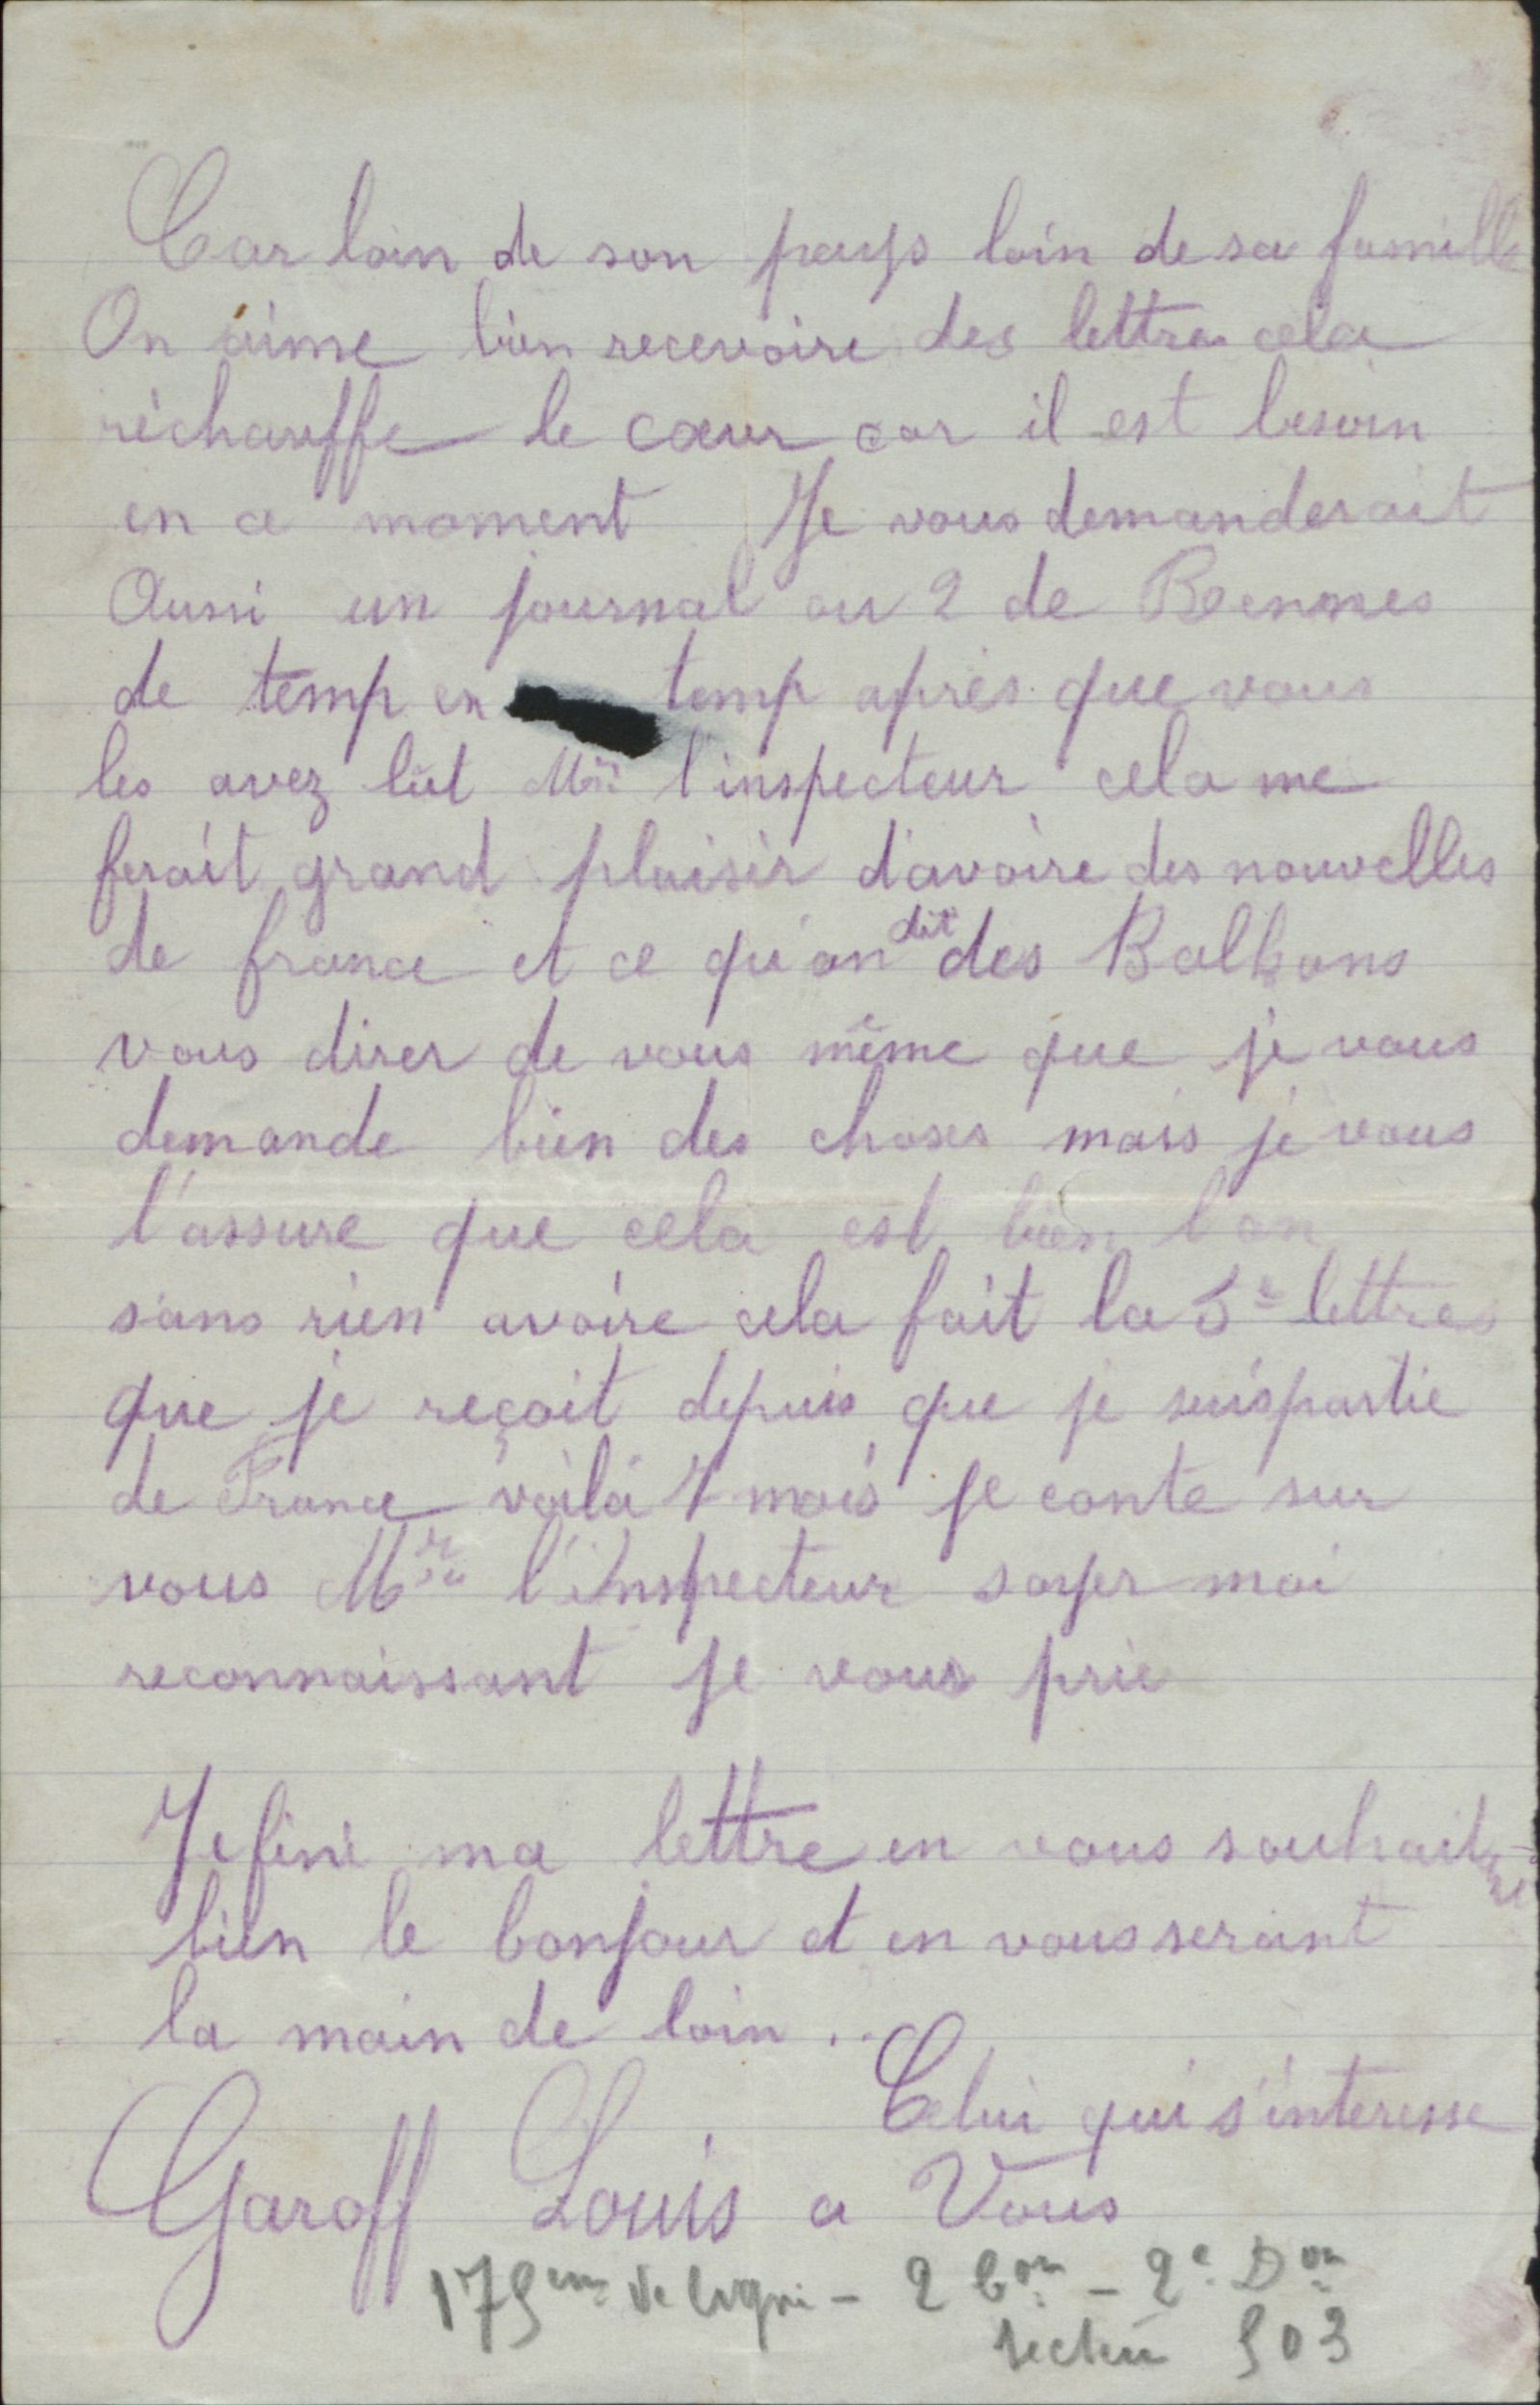 Car loin de son pays loin de sa famille
On aime bien recevoire des lettres cela
réchauffe le cœur car il est besoin
en ce moment Je vous demanderait
Aussi un journal ou 2 de Rennes
de temp en temp après que vous
les avez lût l'inspecteur cela me
ferait grand plaisir d'avoire des nouvelles
de france et ce qu'on dit des Balkans
vous direr de vous même que je vous
demande bien des choses mais je vous
l'assure que cela est bien lon
sans rien avoire cela fait la 5e lettres
que je reçoit depuis que je suis partie
de France voilà 7 mois je conte sur
vous Mr l'inspecteur soyer moi
reconnaissant je vous prie
Je fini ma lettre en vous souhait
bien le bonjour et en vous serant
la main de loin ..
Celui qui s'interesse
Garoff Louis a Vous
175eme de ligne - 2 Bon - 2e Don
secteur 503